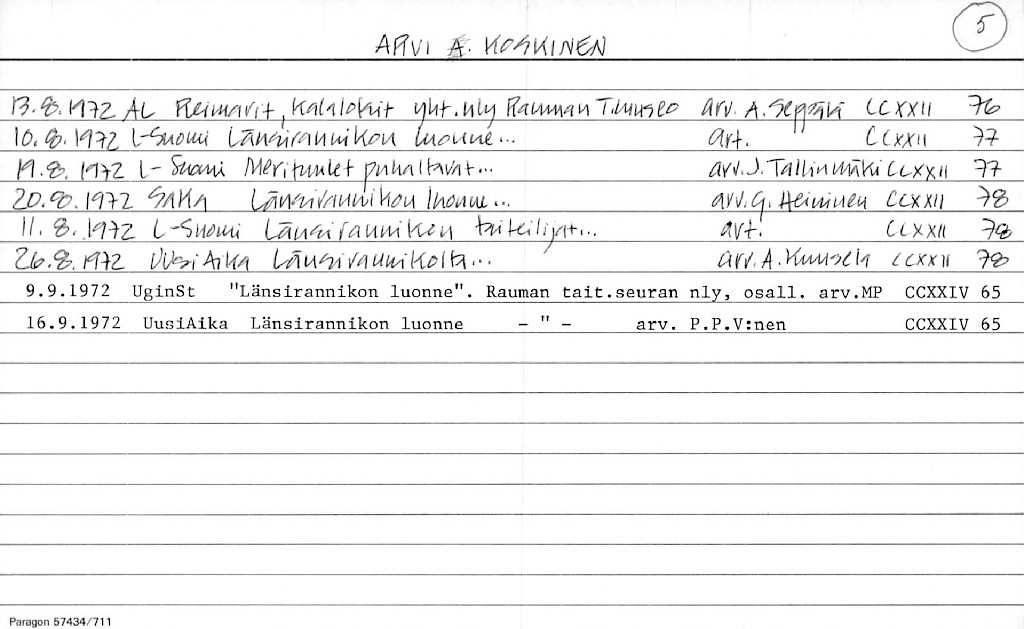 5
ARVI A. KOSKINEN
13.8.1972 AL Reimarit, Kalalokit yht.nly Rauman T.museo arv. A. Seppälä CCXXII 76
10.8.1972 L-Suomi Länsirannikon luonne... art. CCXXII 77
19.8.1972 L-Suomi Merituulet puhaltavat... arv. J. Tallinmäki CCXXII 77
20.8.1972 SaKa Länsirannikon luonne... arv. G. Heininen CCXXII 78
11.8.1972 L-Suomi Länsirannikon taiteilijat... art. CCXXII 78
26.8.1972 Uusi Aika Länsirannikolta... arv. A. Kuusela CCXXII 78
9.9.1972 UginSt "Länsirannikon luonne". Rauman tait.seuran nly, osall. arv.MP CCXXIV 65
16.9.1972 UusiAika Länsirannikon luonne - " - arv. P.P.V:nen CCXXIV 65
Paragon 57434/711